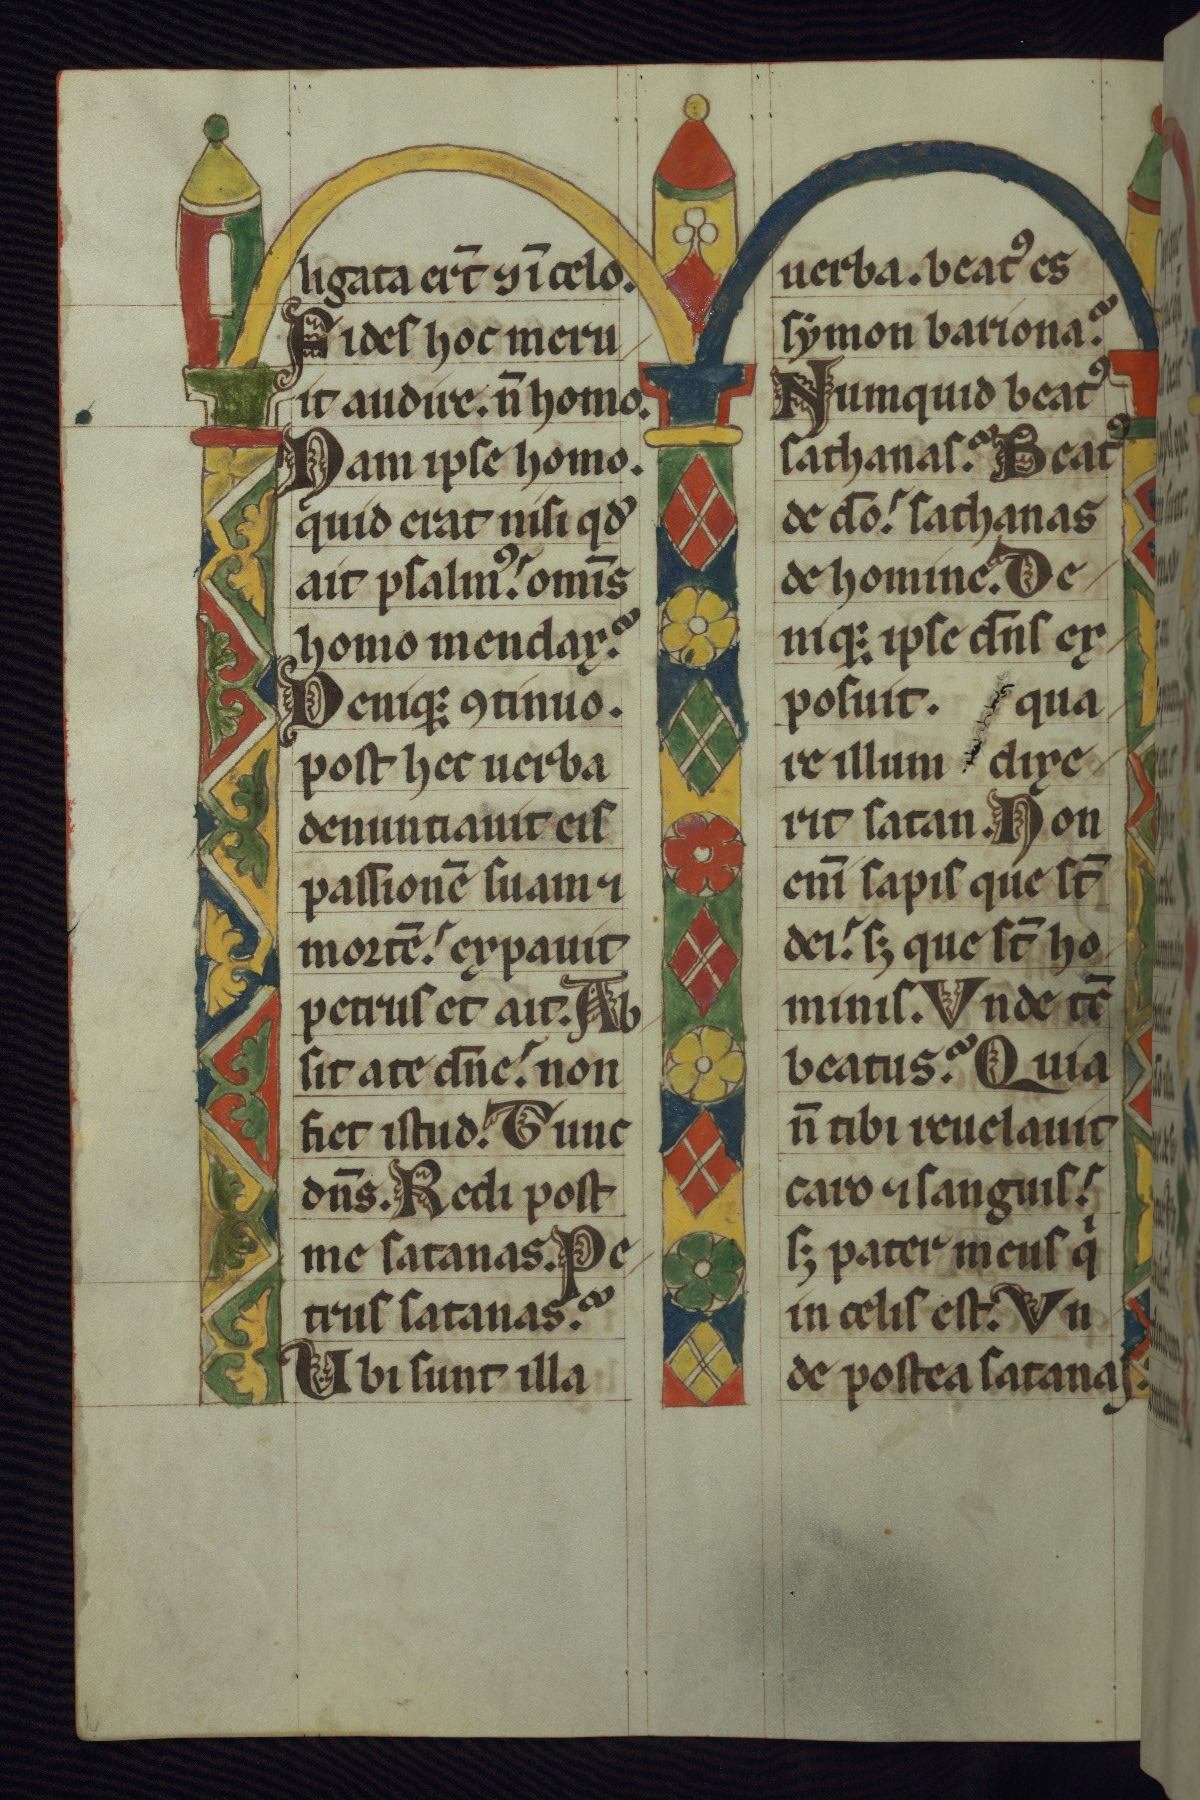 ligata er̄t ⁊ ī celo.
Fides hoc meru
it audire. n̄ homo.
Nam ipse homo.
quid erat nisi qd̾
ait psalmꝰ. omīs
homo mendax.
Deniq; ꝯtinuo.
post hec uerba
denuntiauit eis
passionē suam ⁊
mortē. expauit
petrus et ait. Ab
sit a te dn̄e. non
fiet istud. Tunc
dn̄s. Redi post
me satanas. Pe
trus satanas.
Ubi sunt illa
uerba. beatꝰ es
sẏmon bariona.
Numquid beatꝰ
sathanas. Beatꝰ
de do̅. sathanas
de homine. De
niq; ipse dn̄s ex
posuit. qua
re illum dixe
rit satan. Non
enī sapis que st̄
dei. sꝫ que st̄ ho
minis. Vnde tē
beatus. Quia
n̄ tibi reuelauit
caro ⁊ sanguis.
sꝫ pater meus qͥ
in celis est. Vn
de postea satanas.